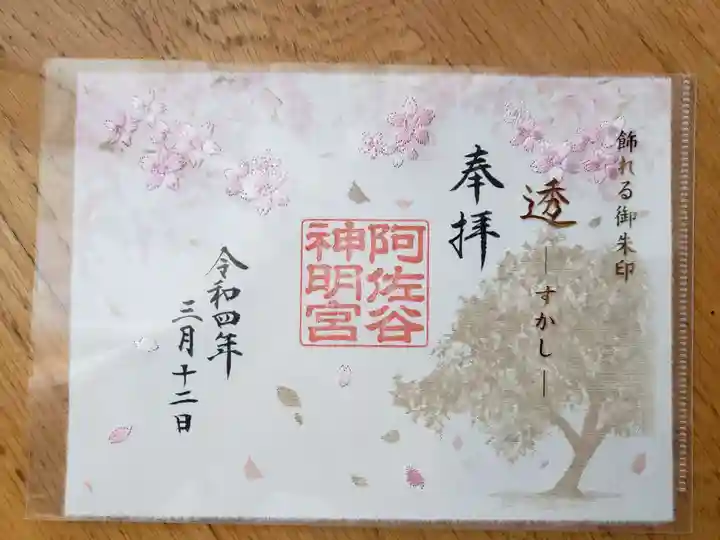 飾れる御朱印
透
―すかし―
奉拝
阿佐谷
神明宮
令和四年
三月十二日